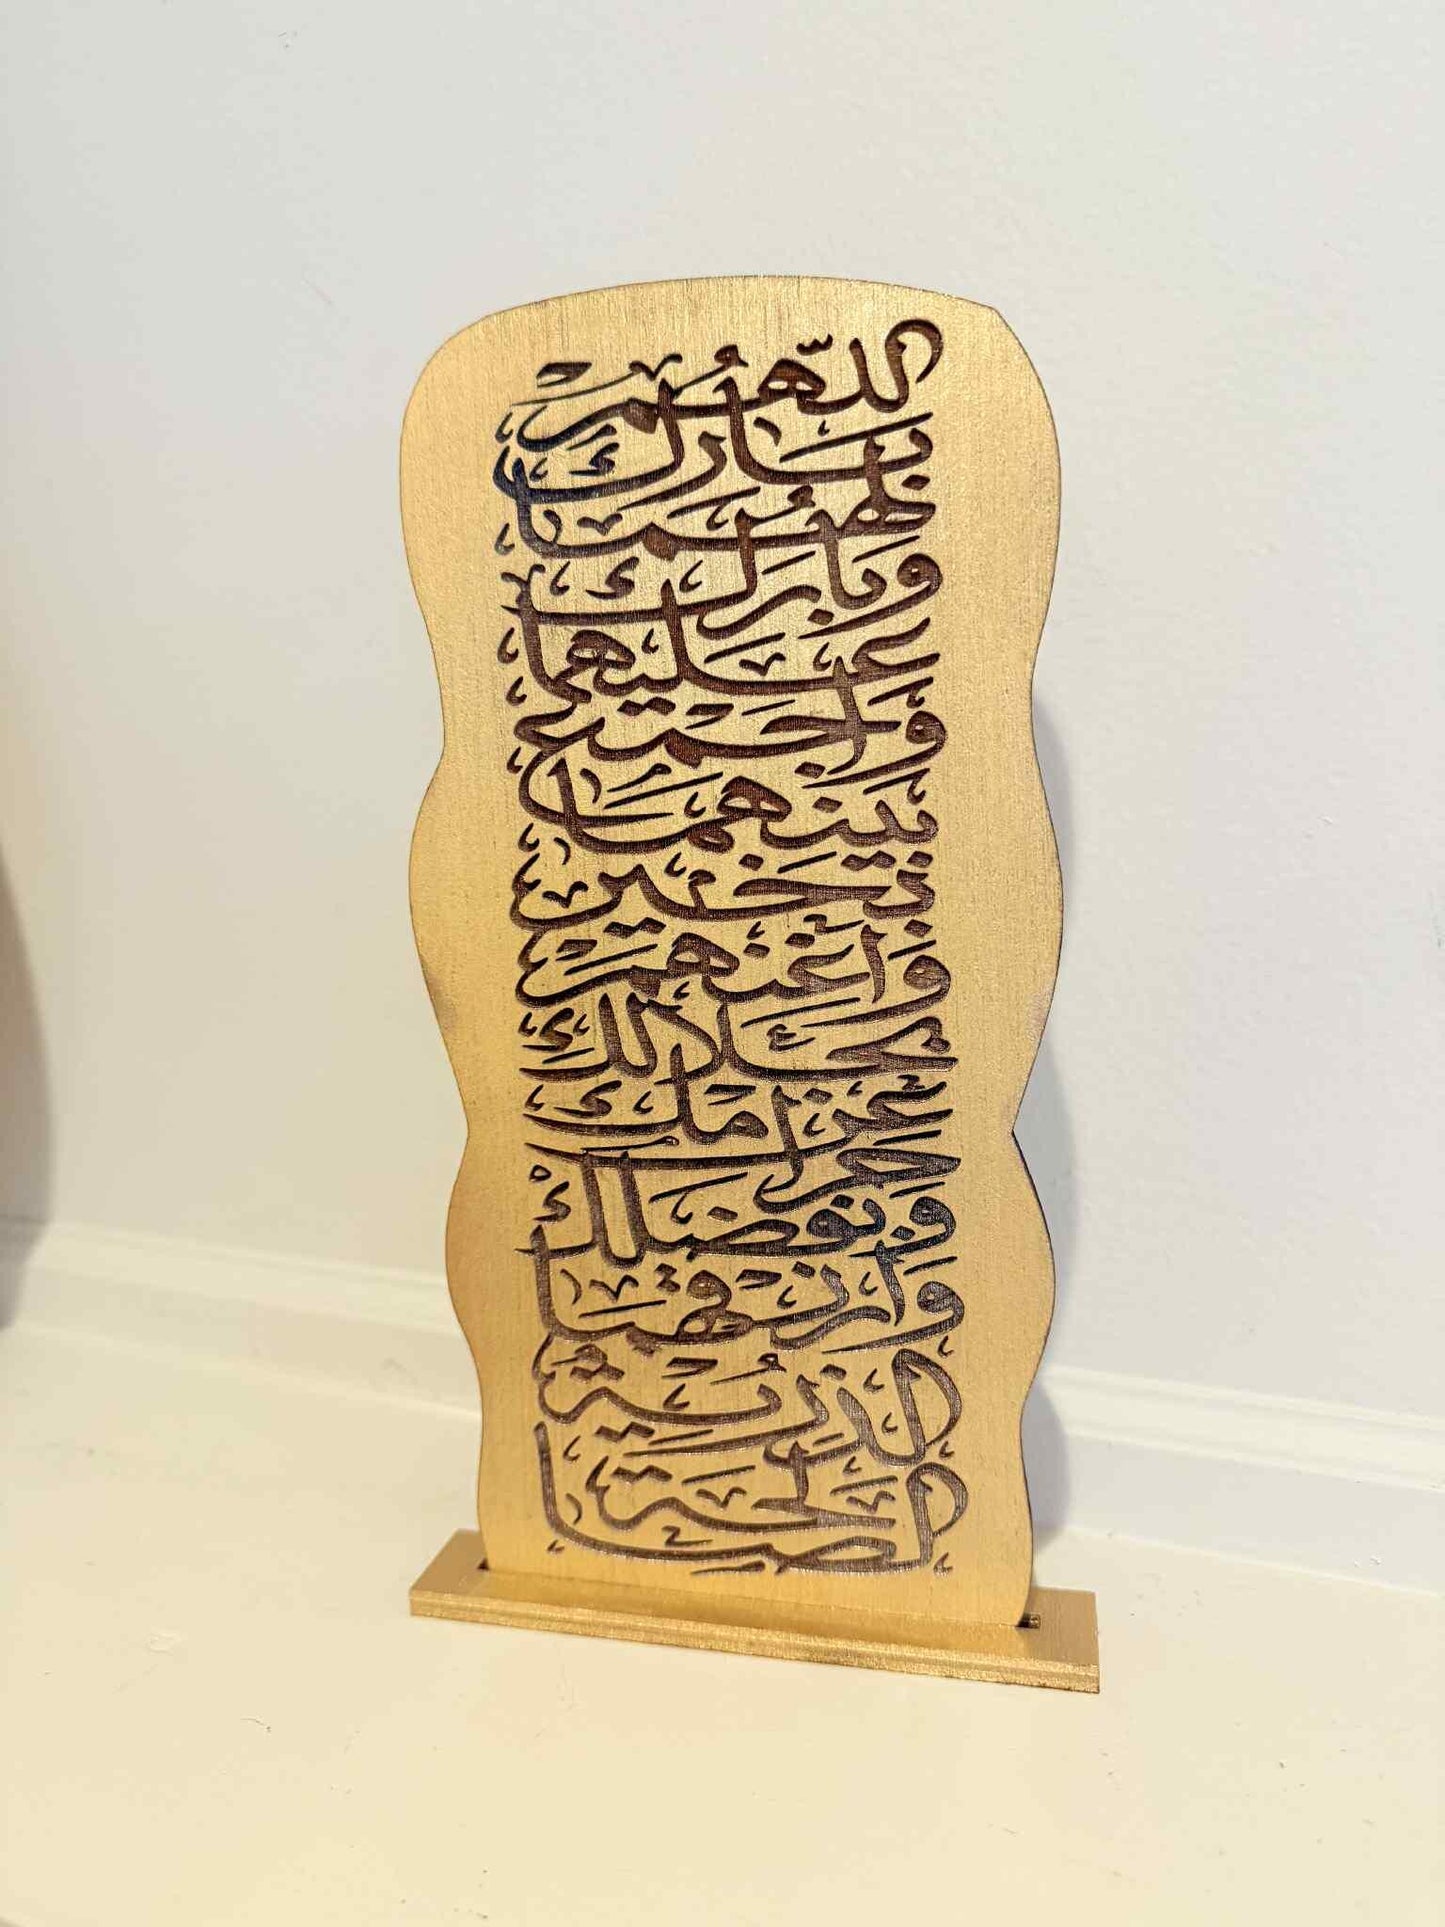 اللّهُمَّ
بَارِكْ
لَهُمَا
وَبَارِكْ
عَلَيْهِمَا
وَاجْمَعْ
بَيْنَهُمَا
بِخَيْرٍ
وَأَغْنِهِمْ
بِحَلَالِكَ
عَنْ
حَرَامِكَ
وَبِفَضْلِكَ
وَارْزُقْهُمَا
الذُرِّيَّةَ
الصَّالِحَةَ